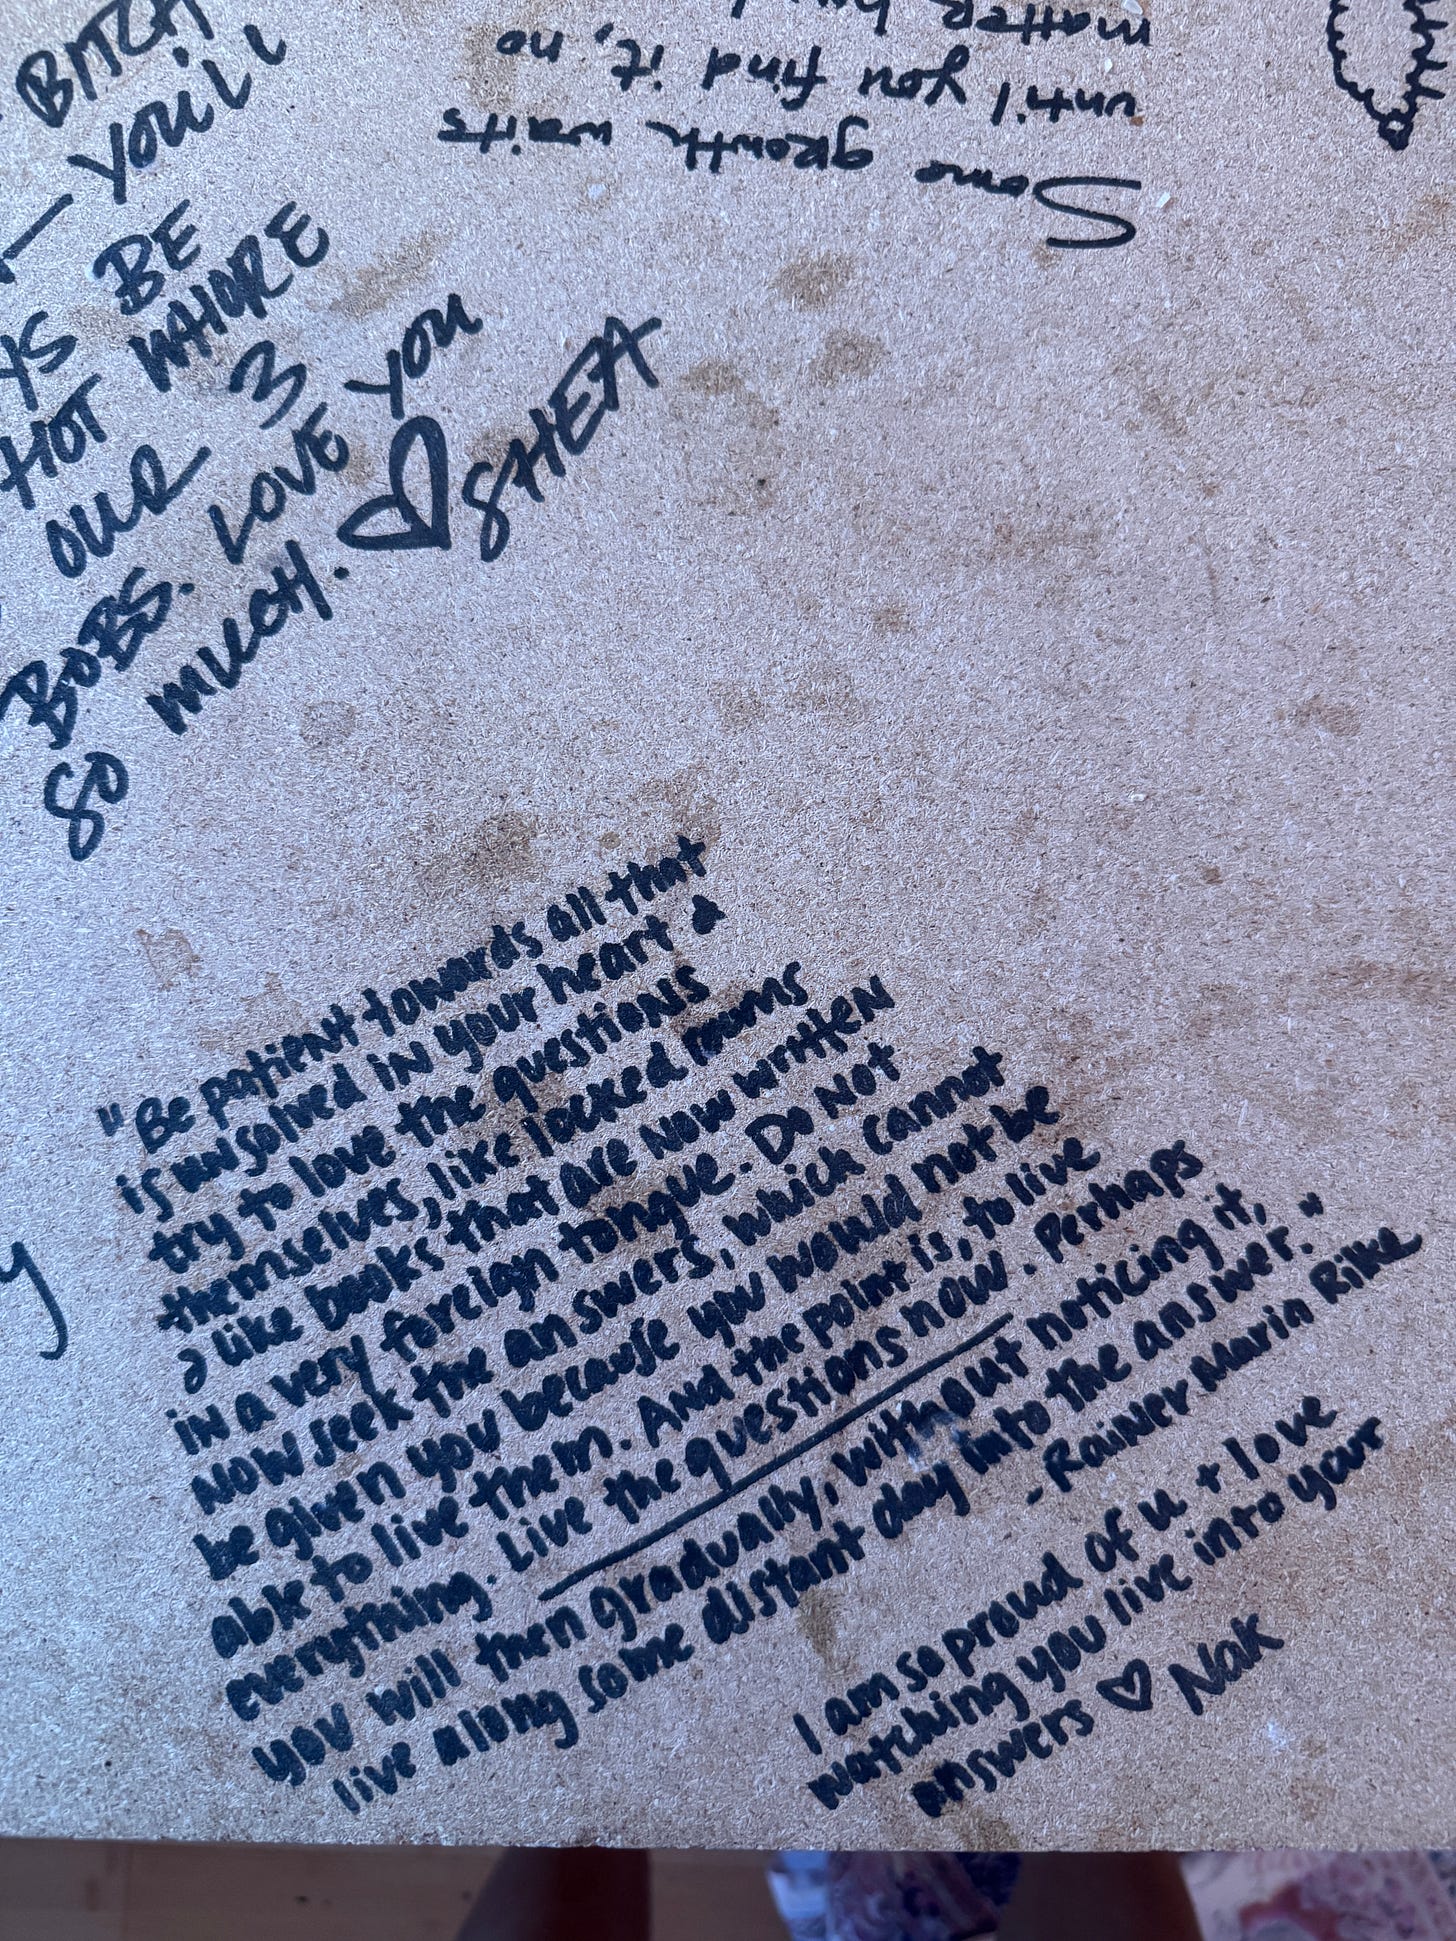 BITCH
— YOU'LL
YS BE
HOT WHORE
OUR 3
BOBS. LOVE YOU
SO MUCH. ♡ SHEA
Some growth waits
until you find it, no
matter how
"Be patient towards all that
is unsolved in your heart &
try to love the questions
themselves, like locked rooms
& like books that are now written
in a very foreign tongue. Do not
now seek the answers, which cannot
be given you because you would not be
able to live them. And the point is, to live
everything. Live the questions now. Perhaps
you will then gradually, without noticing it,
live along some distant day into the answer."
- Rainer Maria Rilke
I am so proud of u + love
watching you live into your
answers ♡ Nak
y